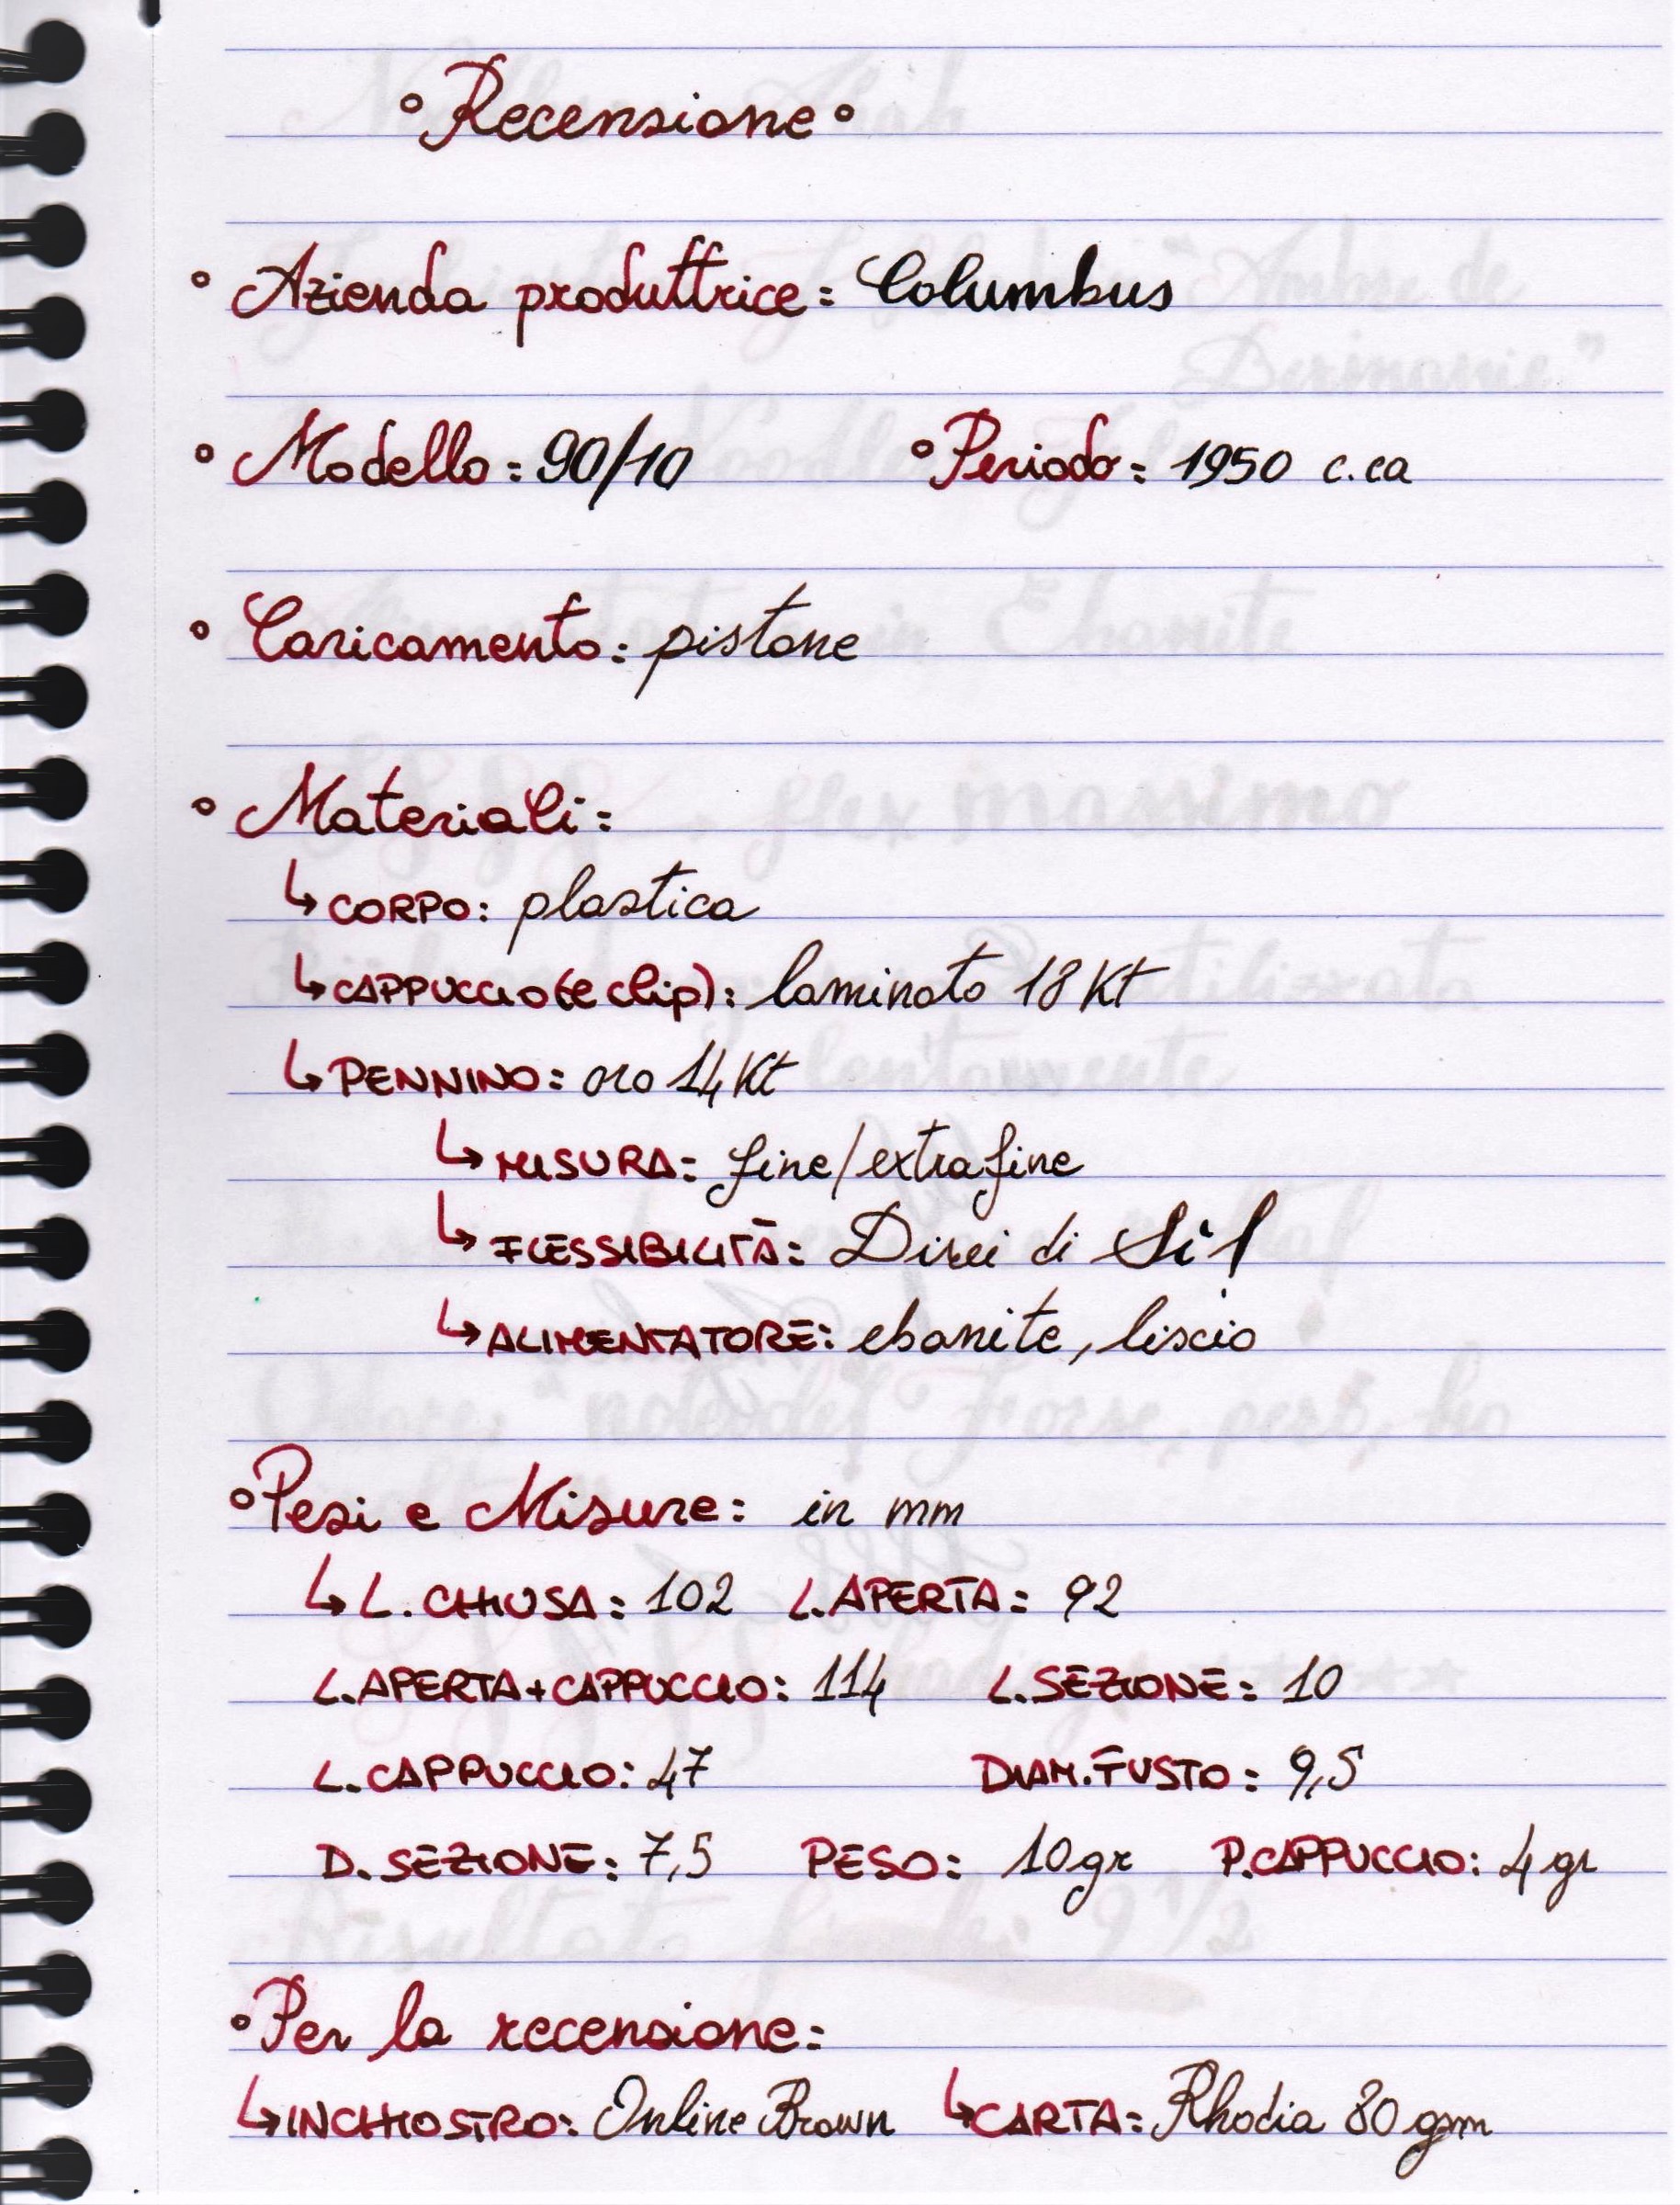 °Recensione°
° Azienda produttrice: Columbus
° Modello: 90/10 °Periodo: 1950 c.ca
° Caricamento: pistone
° Materiali:
↳CORPO: plastica
↳CAPPUCCIO(e clip): laminato 18 Kt
↳PENNINO: oro 14 Kt
↳MISURA: fine/extrafine
↳FLESSIBILITÀ: Direi di Sì!
↳ALIMENTATORE: ebanite, liscio
°Pesi e Misure: in mm
↳L.CHIUSA: 102 L.APERTA: 92
L.APERTA+CAPPUCCIO: 114 L.SEZIONE: 10
L.CAPPUCCIO: 47 DIAM.FUSTO: 9,5
D.SEZIONE: 7,5 PESO: 10 gr P.CAPPUCCIO: 4 gr
°Per la recensione:
↳INCHIOSTRO: Online Brown ↳CARTA: Rhodia 80 gsm